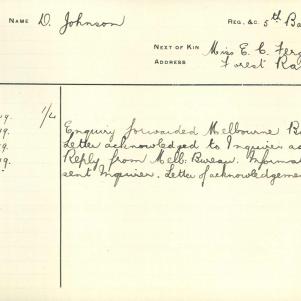 NAME D. Johnson REG. &C. 5th Ba
NEXT OF KIN Miss E. C. Ferg
ADDRESS Forest Ra
19. 1/4 Enquiry forwarded Melbourne B
19. Letter acknowledged to Inquirer as
19. Reply from Melb: Bureau. Informat
19. sent Inquirer. Letter of acknowledgemen